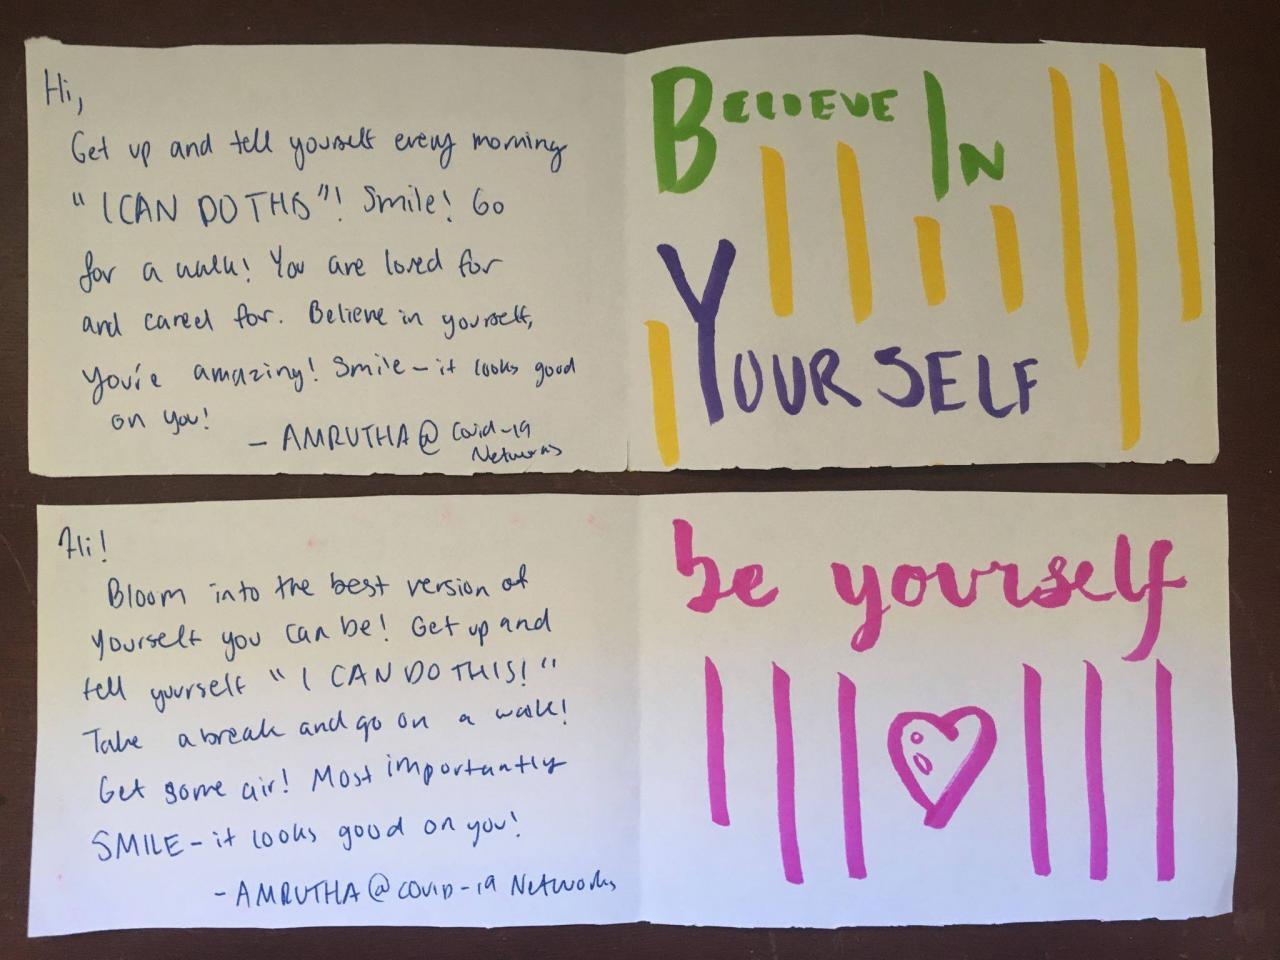 Hi,
Get up and tell yourself every morning
"I CAN DO THIS"! Smile! Go
for a walk! You are loved for
and cared for. Believe in yourself,
you're amazing! Smile - it looks good
on you!
- AMRUTHA @ Covid-19
Networks
BELIEVE IN
YOURSELF
Hi!
Bloom into the best version of
yourself you can be! Get up and
tell yourself "I CAN DO THIS!"
Take a break and go on a walk!
Get some air! Most importantly
SMILE - it looks good on you!
- AMRUTHA @ COVID-19 Networks
be yourself